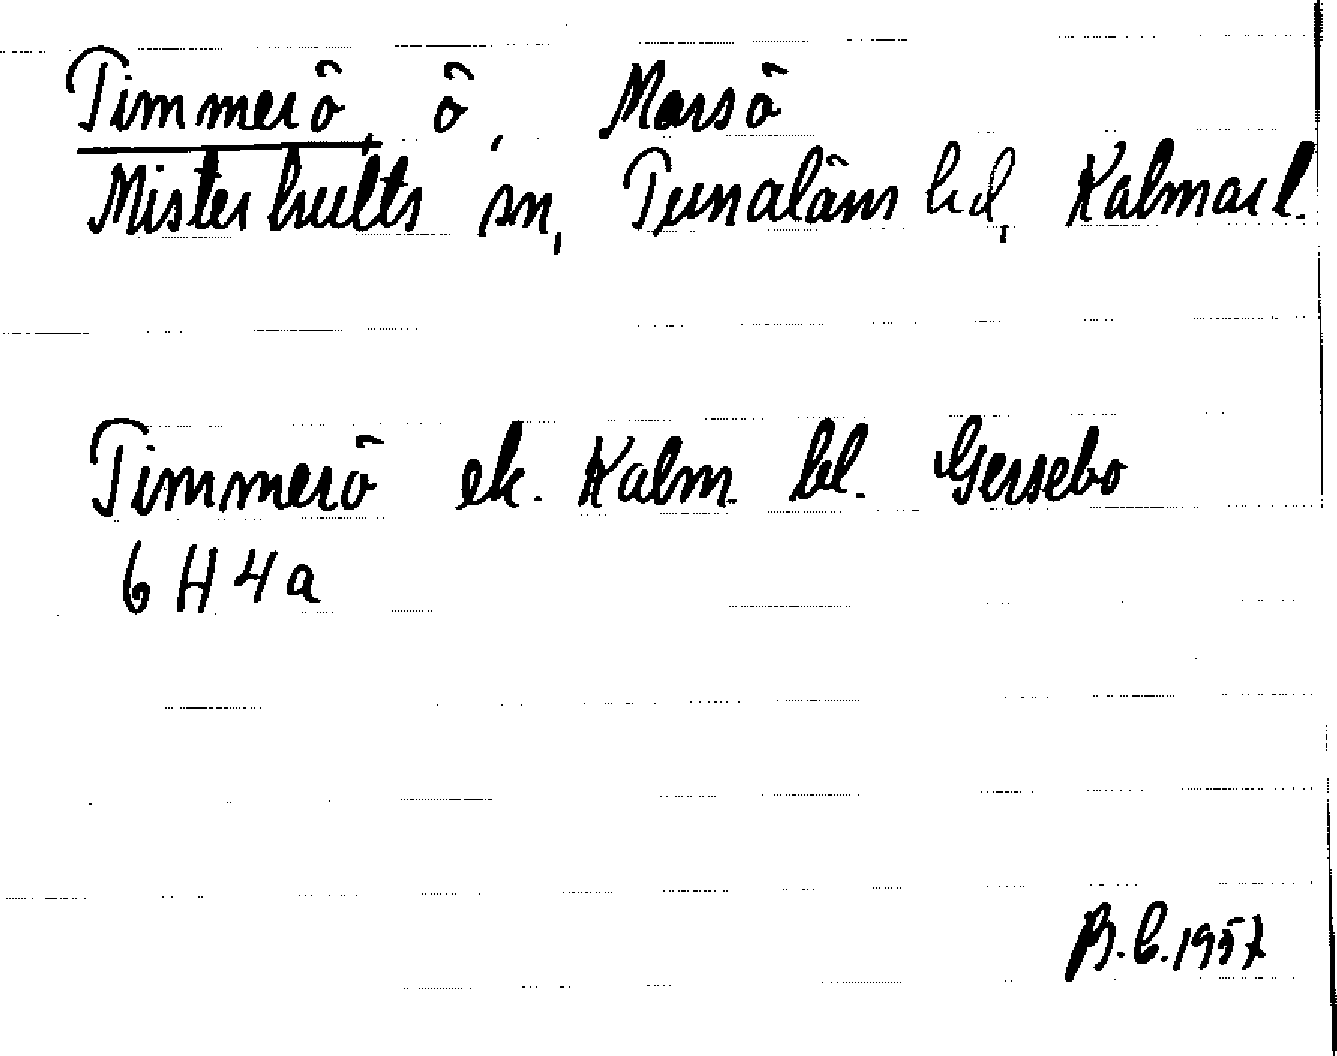 Timmerö, ö, Marsö
Misterhults sn, Tunaläns hd, Kalmar l.
Timmerö ek. Kalm. bl. Gersebo
6 H 4 a
B.C. 1957